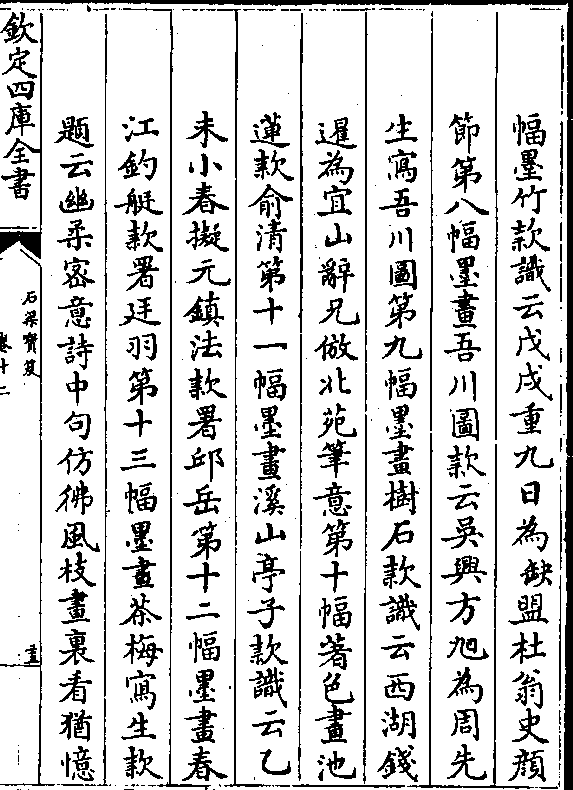 幅墨竹款識云戊戌重九日為缺盟杜翁史顔
節第八幅墨畫吾川圖款云吳興方旭為周先
生寫吾川圖第九幅墨畫樹石款識云西湖錢
暹為宜山辭兄倣北苑筆意第十幅著色畫池
蓮款俞清第十一幅墨畫溪山亭子款識云乙
未小春擬元鎮法款署邱岳第十二幅墨畫春
江釣艇款署廷羽第十三幅墨畫茶梅寫生款
題云幽柔宻意詩中句仿彿風枝畫裏看猶憶
欽定四庫全書
石渠寳笈
卷十二